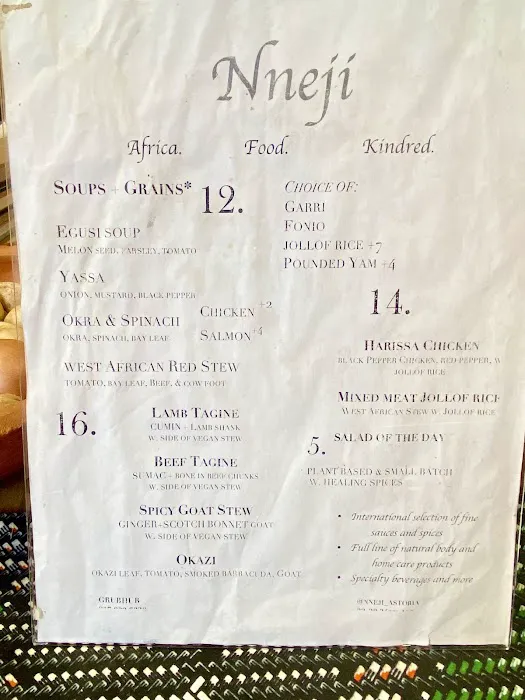 Nneji
Africa. Food. Kindred.
SOUPS + GRAINS* 12.
EGUSI SOUP
MELON SEED, PARSLEY, TOMATO
YASSA
ONION, MUSTARD, BLACK PEPPER
OKRA & SPINACH
OKRA, SPINACH, BAY LEAF
CHICKEN +2
SALMON +4
WEST AFRICAN RED STEW
TOMATO, BAY LEAF, BEEF, & COW FOOT
16.
LAMB TAGINE
CUMIN + LAMB SHANK
W. SIDE OF VEGAN STEW
BEEF TAGINE
SUMAC + BONE IN BEEF CHUNKS
W. SIDE OF VEGAN STEW
SPICY GOAT STEW
GINGER+SCOTCH BONNET GOAT
W. SIDE OF VEGAN STEW
OKAZI
OKAZI LEAF, TOMATO, SMOKED BARRACUDA, GOAT
GRUBHUB
CHOICE OF:
GARRI
FONIO
JOLLOF RICE +7
POUNDED YAM +4
14.
HARISSA CHICKEN
BLACK PEPPER CHICKEN, RED PEPPER, W
JOLLOF RICE
MIXED MEAT JOLLOF RICE
WEST AFRICAN STEW W. JOLLOF RICE
5. SALAD OF THE DAY
PLANT BASED & SMALL BATCH
W. HEALING SPICES
• International selection of fine
sauces and spices
• Full line of natural body and
home care products
• Specialty beverages and more
@NNEJI_ASTORIA